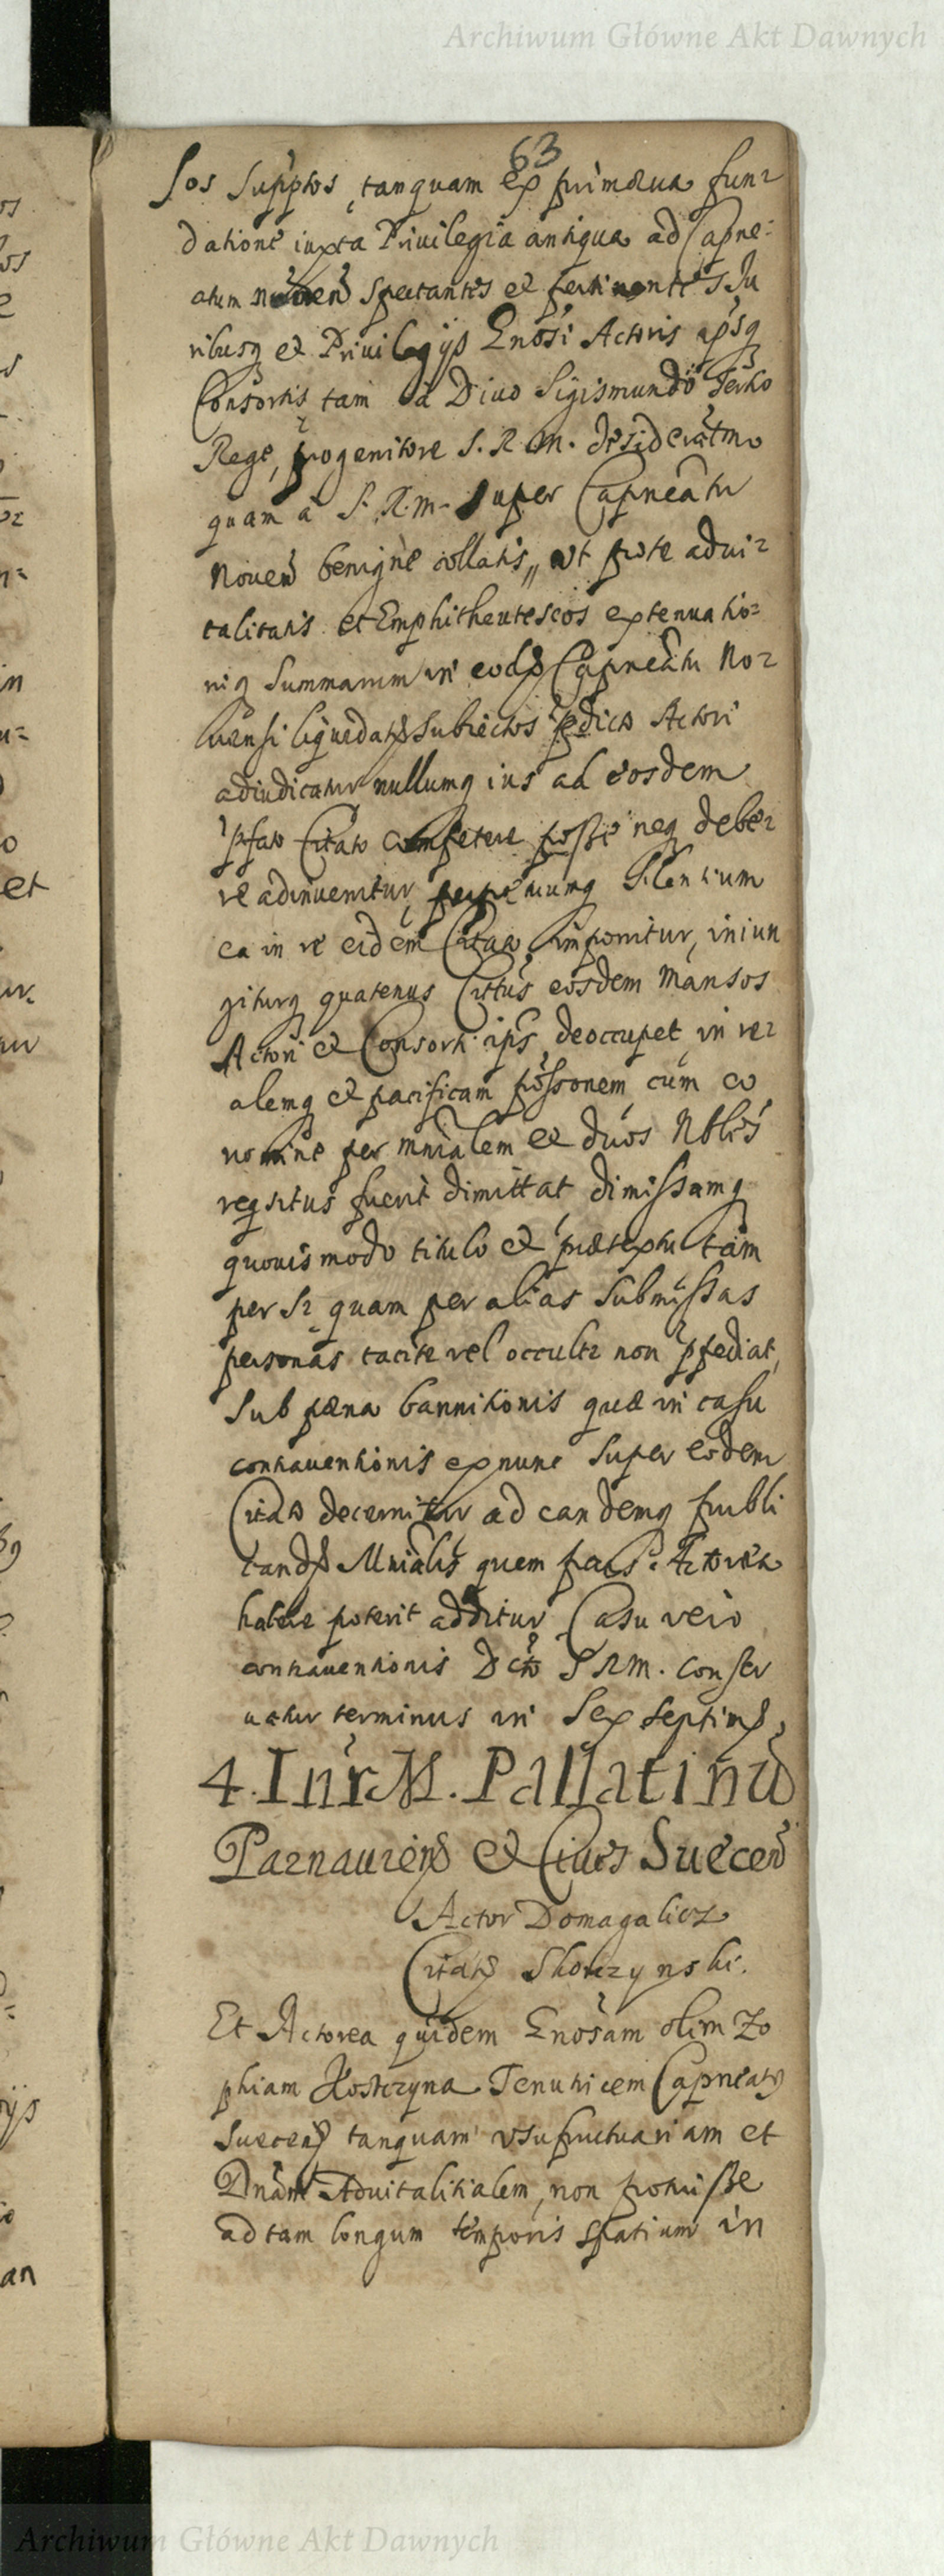 Archiwum Główne Akt Dawnych
63
sos supptos, tanquam ex primæua fun=
datione iuxta Priuilegia antiqua ad Capne=
atum spectantes et pertinentes Ju
ribusq et Priuilegijs Gnosi Actoris apsq
Consortis tam a Diuo Sigismundo Tertio
Rege, progenitore S. R. M. desideratmo
quam a S. R. M. super Capneatu
Nouen benignè collatis, ut pote adui=
talitatis et Emphitheutescos extenuatio=
niq summarum in eodem Capneatu No=
uensi liquidats subiectos pdicto Actori
adiudicatur nullumq ius ad eosdem
pfato Citato competere posse neq debe=
re adinuenitur, perpetuumq silentium
ea in re eidem Citato imponitur, iniun
giturq quatenus Cittus eosdem mansos
Actori et Consorti ips deoccupet in re=
alemq et pacificam possonem, cum eo
nomine per mnialem et duos Nobles
reqsitus fuerit dimittat dimissamq
quouis modo titulo et prætextu tam
per se quam per alias submissas
personas tacite vel occulte non pfediat,
sub pæna bannitionis quæ in casu
contrauentionis ex nunc super eodem
Citato decernitur ad eandemq publi
cands Mnialis quem pars Actorea
habere poterit additur Casu vero
contrauentionis Dcto S R M. conser
uatur terminus in sex septins,
4. Intr M. Pallatinu
Parnauien et Ciues Suecen
Actor Domagalicz
Citats Skotczynski.
Et Actorea quidem Gnosam olim Zo
phiam Kostczyna Tenutricem Capneats
Suecens tanquam usufructuariam et
Dnam Aduitalitialem, non potuisse
ad tam longum temporis spatium in
Archiwum Główne Akt Dawnych